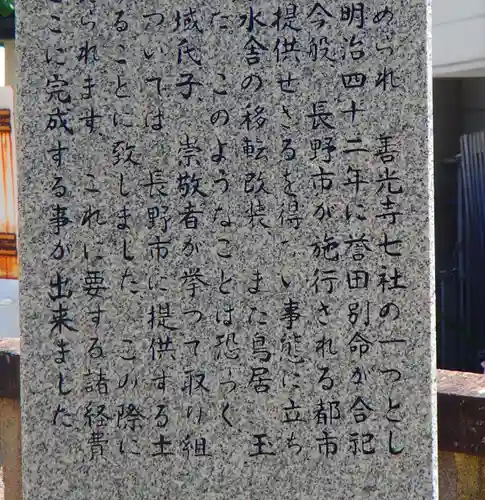 められ 善光寺七社の一つとし
明治四十二年に誉田別命が合祀
今般 長野市が施行される都市
提供せざるを得ない事態に立ち
水舎の移転改装 また鳥居 玉
た このようなことは恐らく
域氏子、崇敬者が挙つて取り組
ついては 長野市に提供する土
ることに致しました この際に
られます これに要する諸経費
ここに完成する事が出来ました